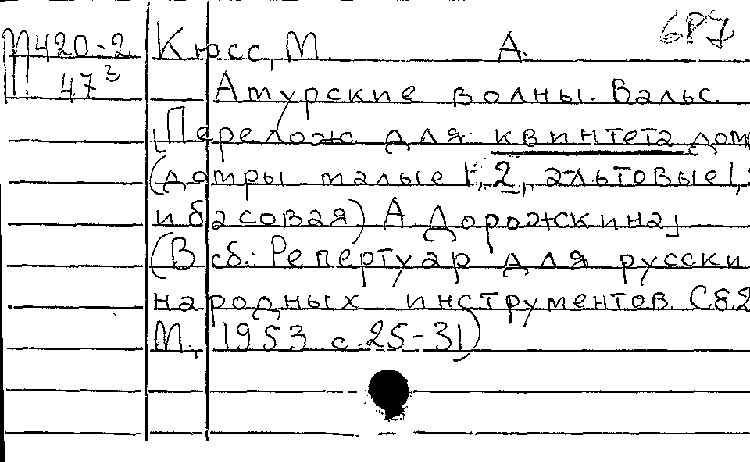 6Р7
М420-2 Кюсс, М. А.
47³ Амурские волны. Вальс.
[Перелож для квинтета дом
(домры малые 1, 2, альтовые 1,
и басовая) А Дорожкина]
(В сб.: Репертуар для русски
народных инструментов. Сб2
М., 1953 с. 25-31)